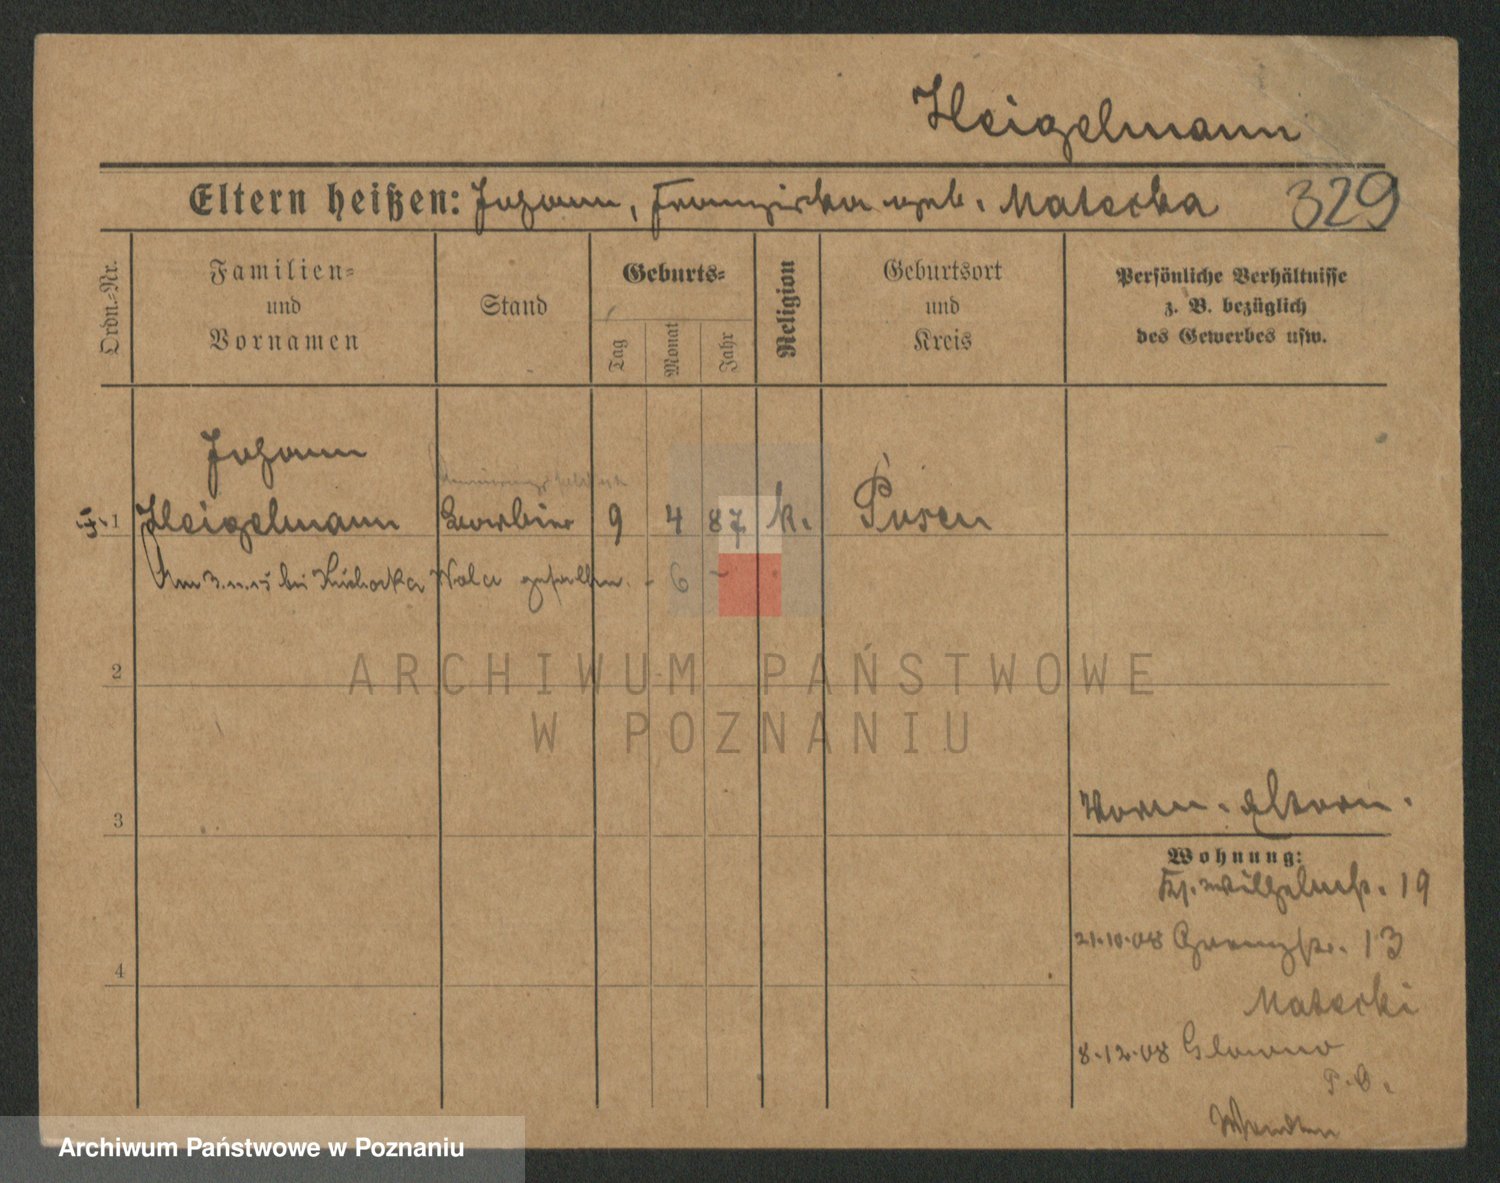 Heigelmann
Eltern heißen: Johann, Franziska geb. Matecka 329
Ordn.-Nr.
Familien-
und
Vornamen
Stand
Geburts-
Tag
Monat
Jahr
Religion
Geburtsort
und
Kreis
Persönliche Verhältnisse
z. B. bezüglich
des Gewerbes usw.
Johann
1 Heigelmann Barbier 9 4 87 k. Posen
Am 3.11.15 bei Wola gefallen. - 6 -
2
3
4
Eltern.
Wohnung:
Kr. Wilhelmstr. 19
21.10.08 Grenzstr. 13
Matecki
8.12.08 Glowno
P. O.
ARCHIWUM PAŃSTWOWE
W POZNANIU
Archiwum Państwowe w Poznaniu